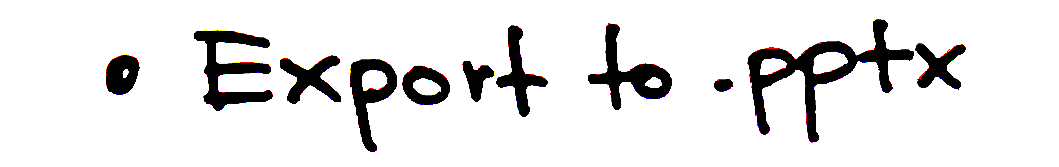 • Export to .pptx